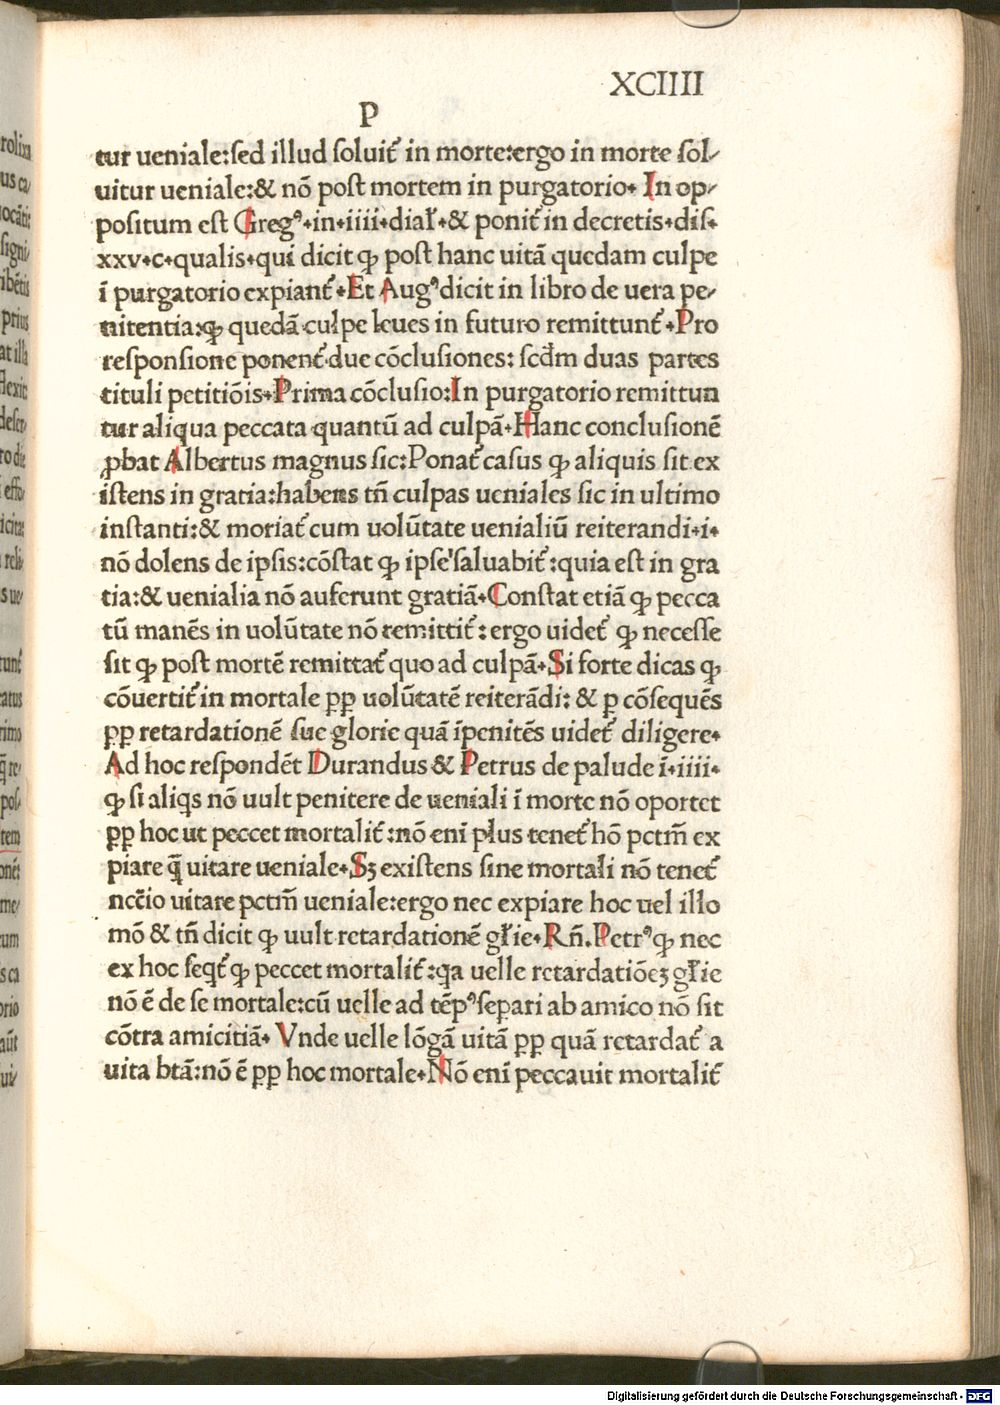 XCIIII
P
tur ueniale:sed illud soluit᷑ in morte:ergo in morte sol⸗
uitur ueniale:& nō post mortem in purgatorio. In op⸗
positum est Gregꝰ.in.iiii.dial̄.& ponit᷑ in decretis.dis.
xxv.c.qualis.qui dicit ꝙ post hanc uitā quedam culpe
ī purgatorio expiant᷑.Et Augꝰ dicit in libro de uera pe⸗
nitentia:ꝙ quedā culpe leues in futuro remittunt᷑.Pro
responsione ponent᷑ due cōclusiones: scd̄m duas partes
tituli petitiōis.Prima cōclusio:In purgatorio remittun
tur aliqua peccata quantū ad culpā.Hanc conclusionē
ꝓbat Albertus magnus sic:Ponat᷑ casus ꝙ aliquis sit ex
istens in gratia:habens tn̄ culpas ueniales sic in ultimo
instanti:& moriat᷑ cum uolūtate uenialiū reiterandi.i.
nō dolens de ipsis:cōstat ꝙ ipse saluabit᷑:quia est in gra
tia:& uenialia nō auferunt gratiā.Constat etiā ꝙ pecca
tū manēs in uolūtate nō remittit᷑: ergo uidet᷑ ꝙ necesse
sit ꝙ post mortē remittat᷑ quo ad culpā.Si forte dicas ꝙ
cōuertit᷑ in mortale ꝓꝑ uolūtatē reiterādi: & ꝑ cōsequēs
ꝓꝑ retardationē sue glorie quā īpenitēs uidet᷑ diligere.
Ad hoc respondēt Durandus & Petrus de palude ī.iiii.
ꝙ si aliqs nō uult penitere de ueniali ī morte nō oportet
ꝓꝑ hoc ut peccet mortalit᷑:nō enī plus tenet᷑ hō pctm̄ ex
piare q̄ uitare ueniale.Sꝫ existens sine mortali nō tenet᷑
ncc̄io uitare pctm̄ ueniale:ergo nec expiare hoc uel illo
mō & tn̄ dicit ꝙ uult retardationē gl̄ie.Rn̄.Petrꝰ ꝙ nec
ex hoc seqt᷑ ꝙ peccet mortalit᷑:qa uelle retardatiōeꝫ gl̄ie
nō ē de se mortale:cū uelle ad tēpꝰ separi ab amico nō sit
cōtra amicitiā. Vnde uelle lōgā uitā ꝓꝑ quā retardat᷑ a
uita btā:nō ē ꝓꝑ hoc mortale.Nō enī peccauit mortalit᷑
Digitalisierung gefördert durch die Deutsche Forschungsgemeinschaft - DFG